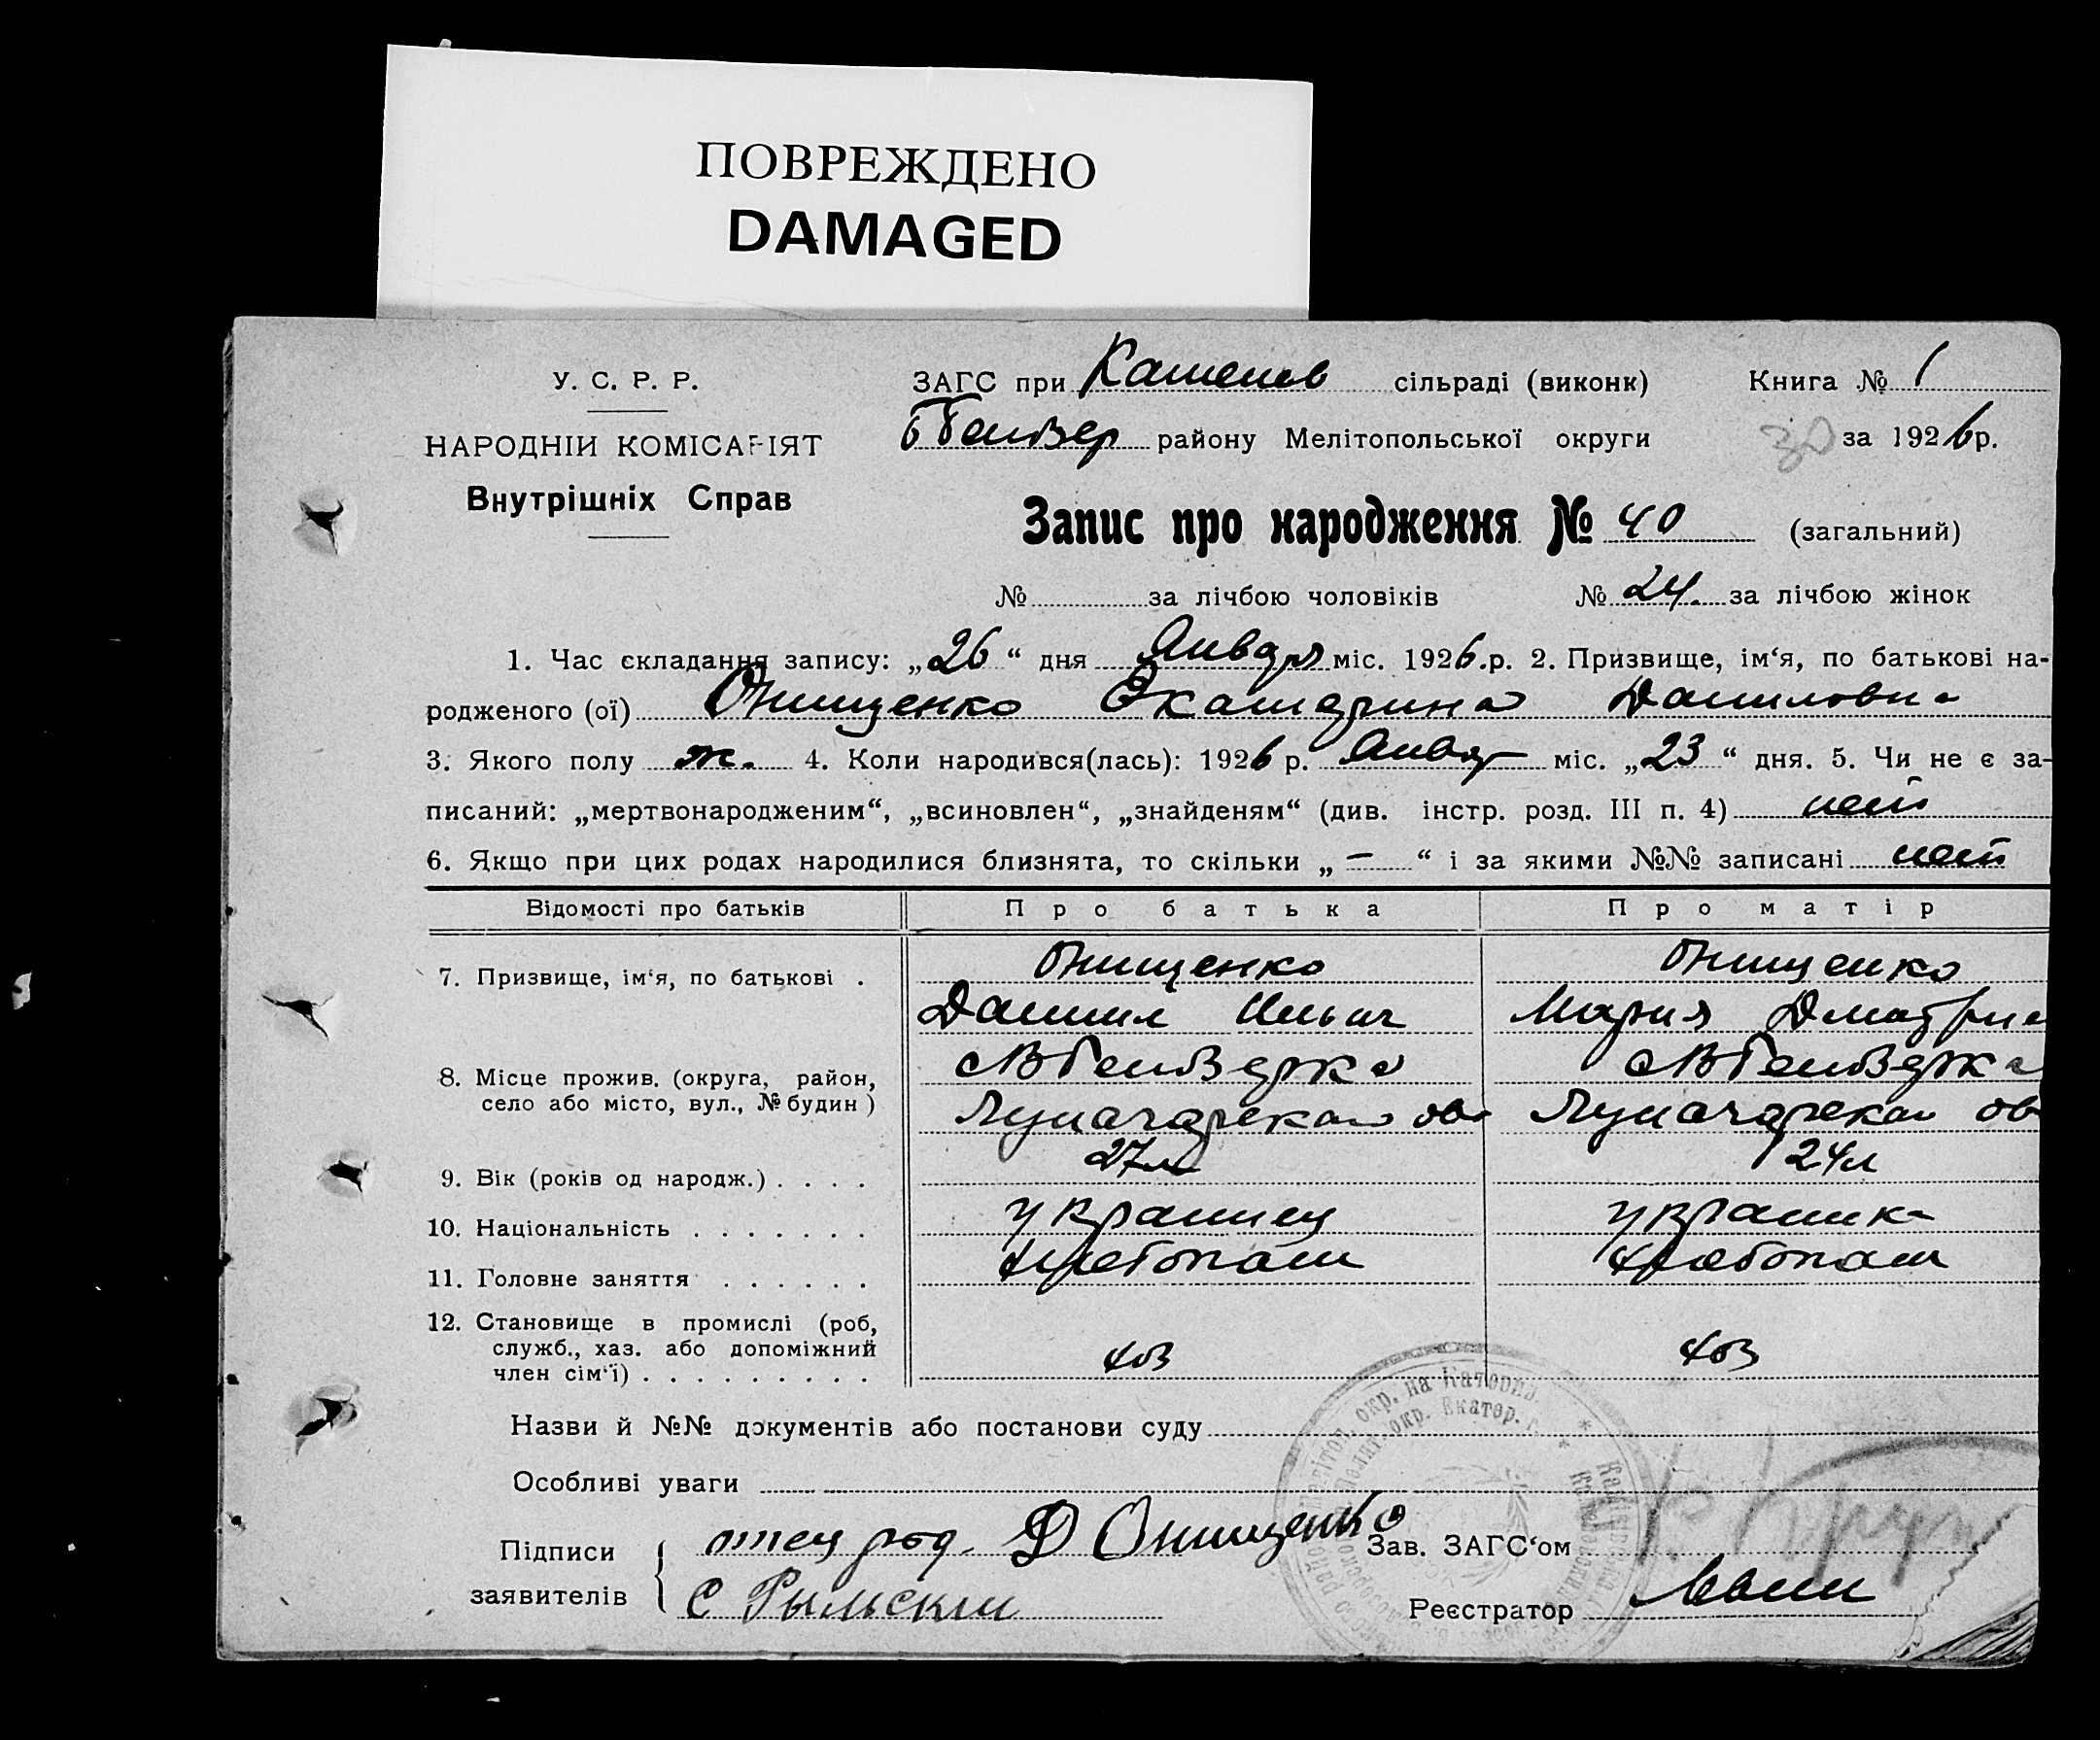 ПОВРЕЖДЕНО
DAMAGED
У. С. Р. Р.
НАРОДНІЙ КОМІСАРІЯТ
Внутрішніх Справ
ЗАГС при Каменев сільраді (виконк) Книга № 1
району Мелітопольської округи 30 за 1926р.
Запис про народження № 40 (загальний)
№ за лічбою чоловіків № 24. за лічбою жінок
1. Час складання запису: „26“ дня Января міс. 1926.р. 2. Призвище, ім‘я, по батькові на-
родженого (ої) Онищенко Екатерина Даниловна
3. Якого полу ж. 4. Коли народився(лась): 1926 р. Январ міс. „23“ дня. 5. Чи не є за-
писаний: „мертвонародженим“, „всиновлен“, „знайденям“ (див. інстр. розд. III п. 4) нет
6. Якщо при цих родах народилися близнята, то скільки „—“ і за якими №№ записані нет
Відомості про батьків Про батька Про матір
7. Призвище, ім‘я, по батькові . Онищенко Онищенко
Даниил Ильич Мария Дмитрие
8. Місце прожив. (округа, район,
село або місто, вул., № будин )
9. Вік (років од народж.) . . . . 27л 24л
10. Національність . . . . . . . украинец украинка
11. Головне заняття . . . . . . хлебопаш хлебопаш
12. Становище в промислі (роб,
служб., хаз. або допоміжний
член сім‘ї) . . . . . . . . . хоз хоз
Назви й №№ документів або постанови суду
Особливі уваги
Підписи отец род. Д Онищенко Зав. ЗАГС‘ом
заявителів С Рымский Реєстратор